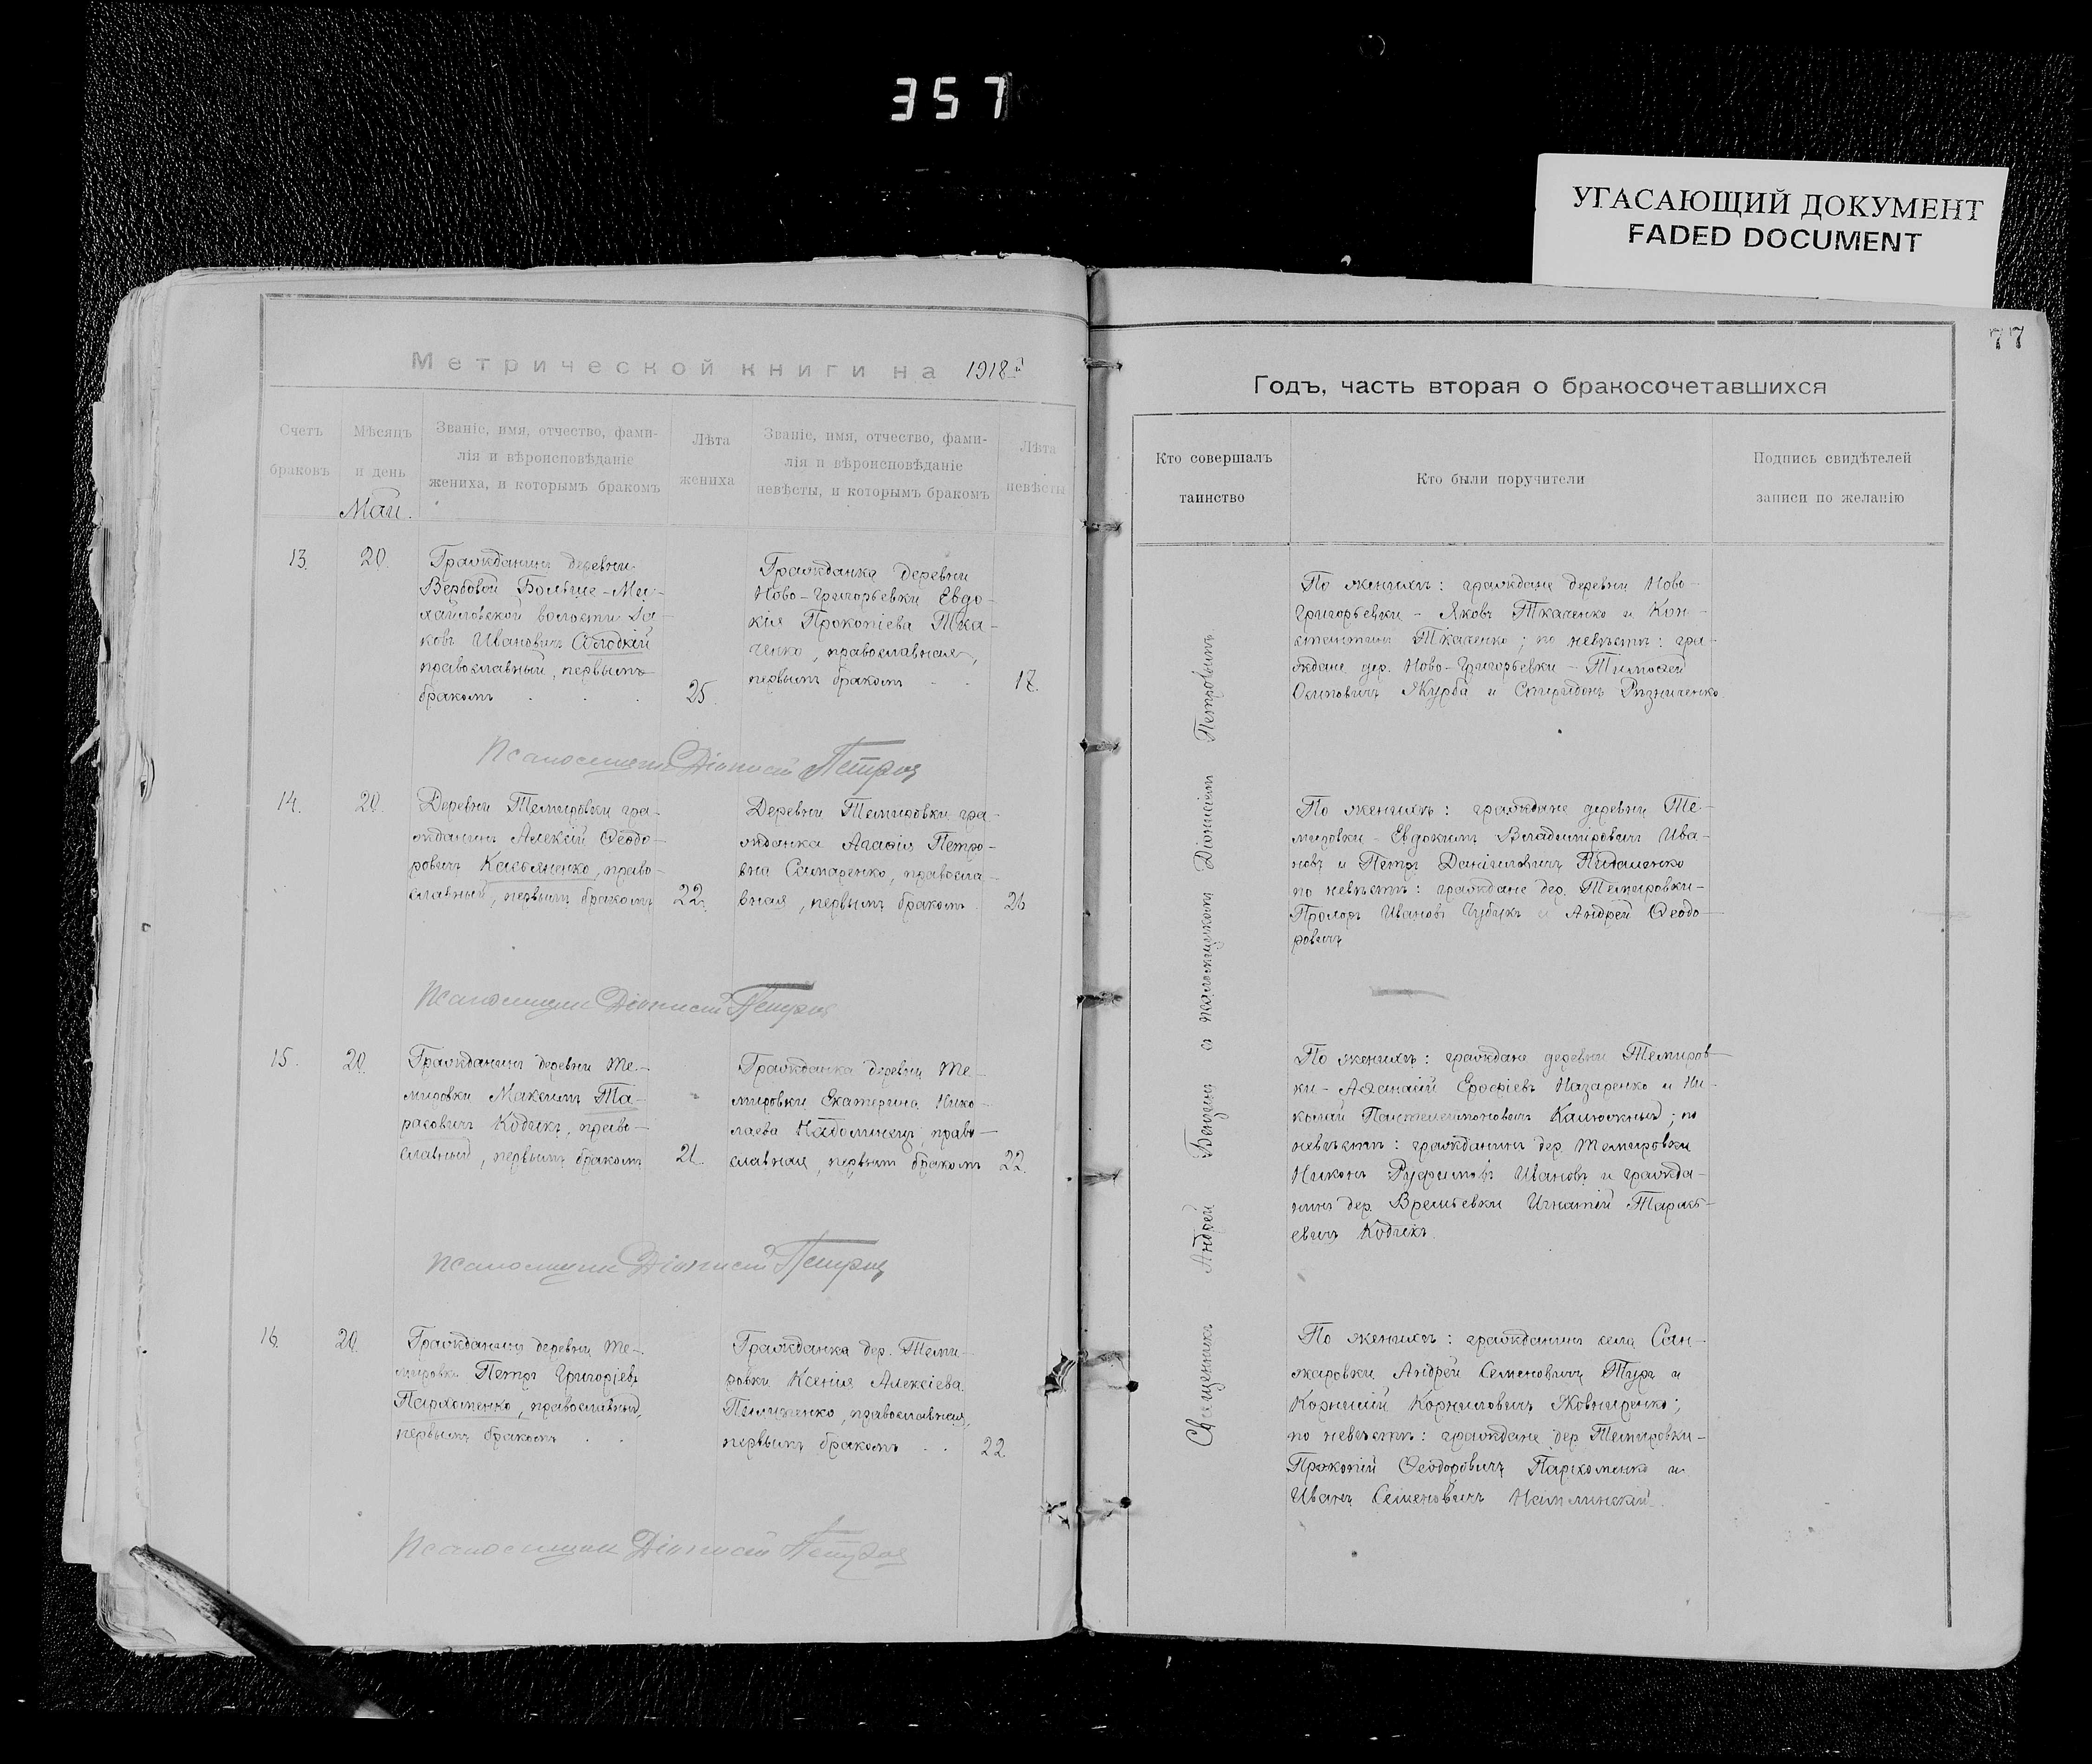 357
УГАСАЮЩИЙ ДОКУМЕНТ
FADED DOCUMENT
77
Метрической книги на 1918й
Счетъ браковъ
Мѣсяцъ и день
Званіе, имя, отчество, фами-
лія и вѣроисповѣданіе
жениха, и которымъ бракомъ
Лѣта жениха
Званіе, имя, отчество, фами-
лія и вѣроисповѣданіе
невѣсты, и которымъ бракомъ
Лѣта невѣсты
Май.
13.
20.
Гражданинъ деревни
Вербовой Больше-Ми-
хайловской волости Іа-
ковъ Ивановичъ
православный, первымъ
бракомъ
25.
Гражданка деревни
Ново-Григорьевки Евдо-
кія Прокопіева Тка-
ченко, православная,
первымъ бракомъ
18.
Псаломщикъ Діонисій Петровъ
14.
20.
Деревни Темировки гра-
жданинъ Алексій Ѳеодо-
ровичъ Касьяненко, право-
славный, первымъ бракомъ
22.
Деревни Темировки гра-
жданка Агаѳія Петро-
вна, правосла-
вная, первымъ бракомъ
26
Псаломщикъ Діонисій Петровъ
15.
20.
Гражданинъ деревни Те-
мировки Максимъ Та-
расовичъ Кодакъ, право-
славный, первымъ бракомъ
21.
Гражданка деревни Те-
мировки Екатерина Нико-
лаева, право-
славная, первымъ бракомъ
22.
Псаломщикъ Діонисій Петровъ
16.
20.
Гражданинъ деревни Те-
мировки Петръ Григоріевъ
Пархоменко, православный,
первымъ бракомъ
Гражданка дер. Теми-
ровки Ксенія Алексіева
православная,
первымъ бракомъ
22
Псаломщикъ Діонисій Петровъ
Годъ, часть вторая о бракосочетавшихся
Кто совершалъ
таинство
Кто были поручители
Подпись свидѣтелей
записи по желанію
Священникъ Андрей и псаломщикомъ Діонисіем Петровымъ
По женихѣ: граждане деревни Ново-
Григорьевки - Яковъ Ткаченко и Кон-
стантинъ Ткаченко; по невѣстѣ: гра-
ждане дер. Ново-Григорьевки - Тимоѳей
Осиповичъ Журба и Спиридонъ Ризниченко
По женихѣ: граждане деревни Те-
мировки - Евдокимъ Владиміровичъ Ива-
новъ и Петръ Даніиловичъ
по невѣстѣ: граждане дер. Темировки -
Ивановъ и Андрей Ѳеодо-
ровичъ
По женихѣ: граждане деревни Темиров-
ки - Аѳанасій Назаренко и Ни-
колай Пантелеимоновичъ Калюжный; по
невѣстѣ: гражданинъ дер. Темировки
Никонъ Ивановъ и гражда-
нинъ дер. Времьевки Игнатій
евичъ Кодакъ.
По женихѣ: гражданинъ села Сан-
жаровки Андрей Семеновичъ Туръ и
Корнилій Корниловичъ Жовниренко;
по невѣстѣ: граждане дер. Темировки -
Прокопій Ѳеодоровичъ Пархоменко и
Иванъ Семеновичъ